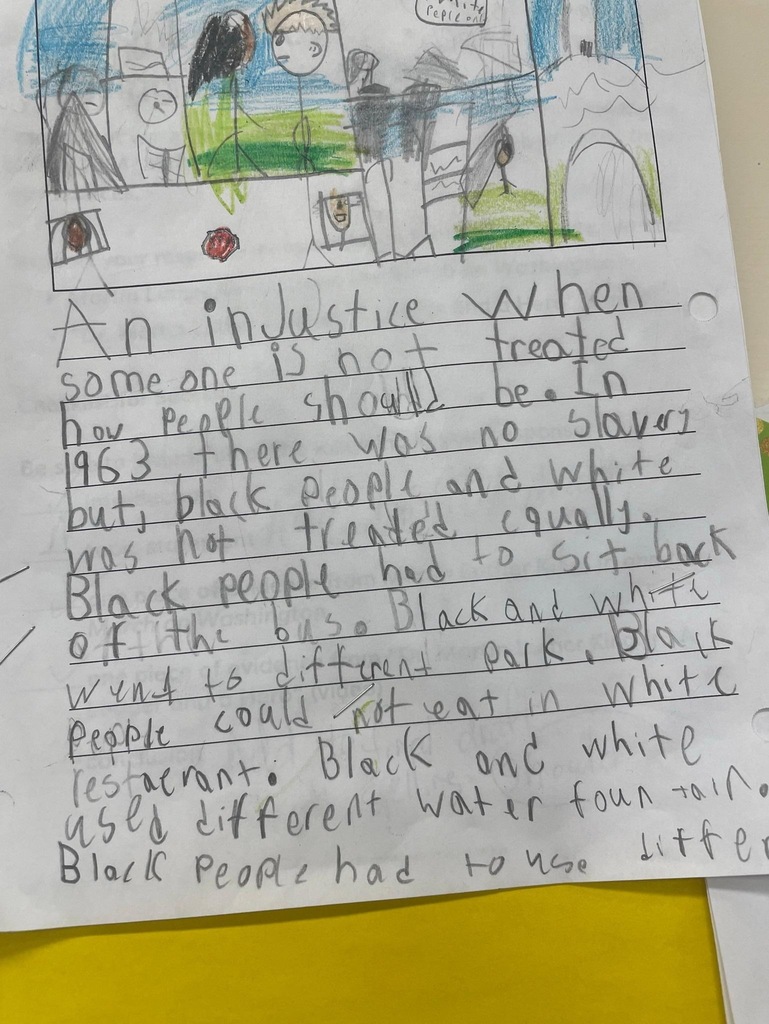 People only
An injustice when
some one is not treated
how people should be. In
1963 there was no slavery
but, black people and white
was not treated equally.
Black people had to sit back
off the bus. Black and white
went to different park. Black
people could not eat in white
restaerant. Black and white
used different water fountain.
Black People had to use differ